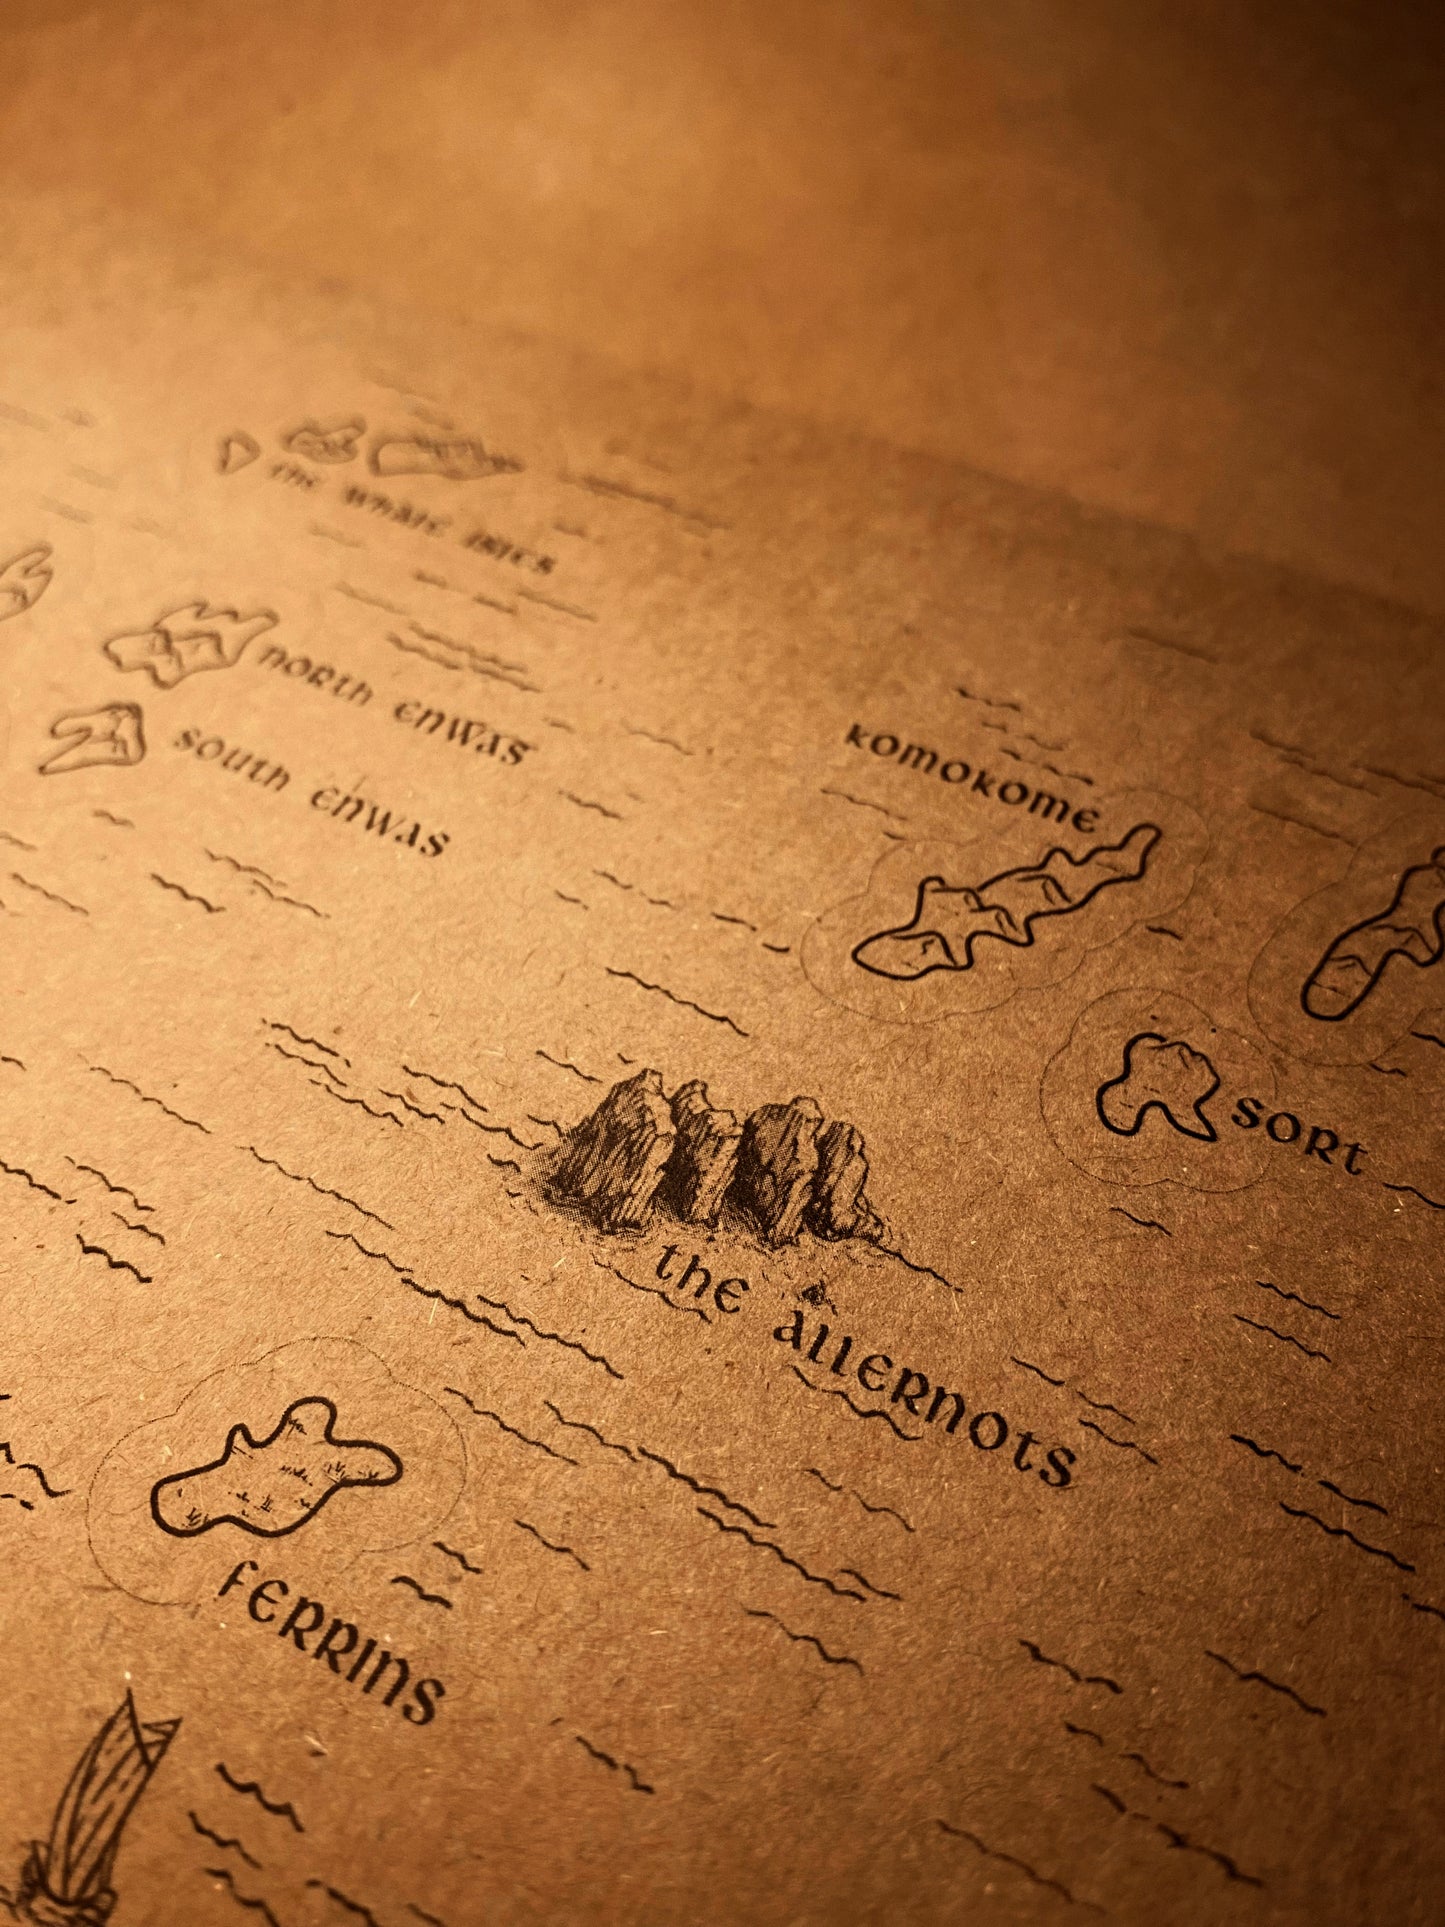 the whale isles
north enwas
south enwas
komokome
sort
the allernots
ferrins